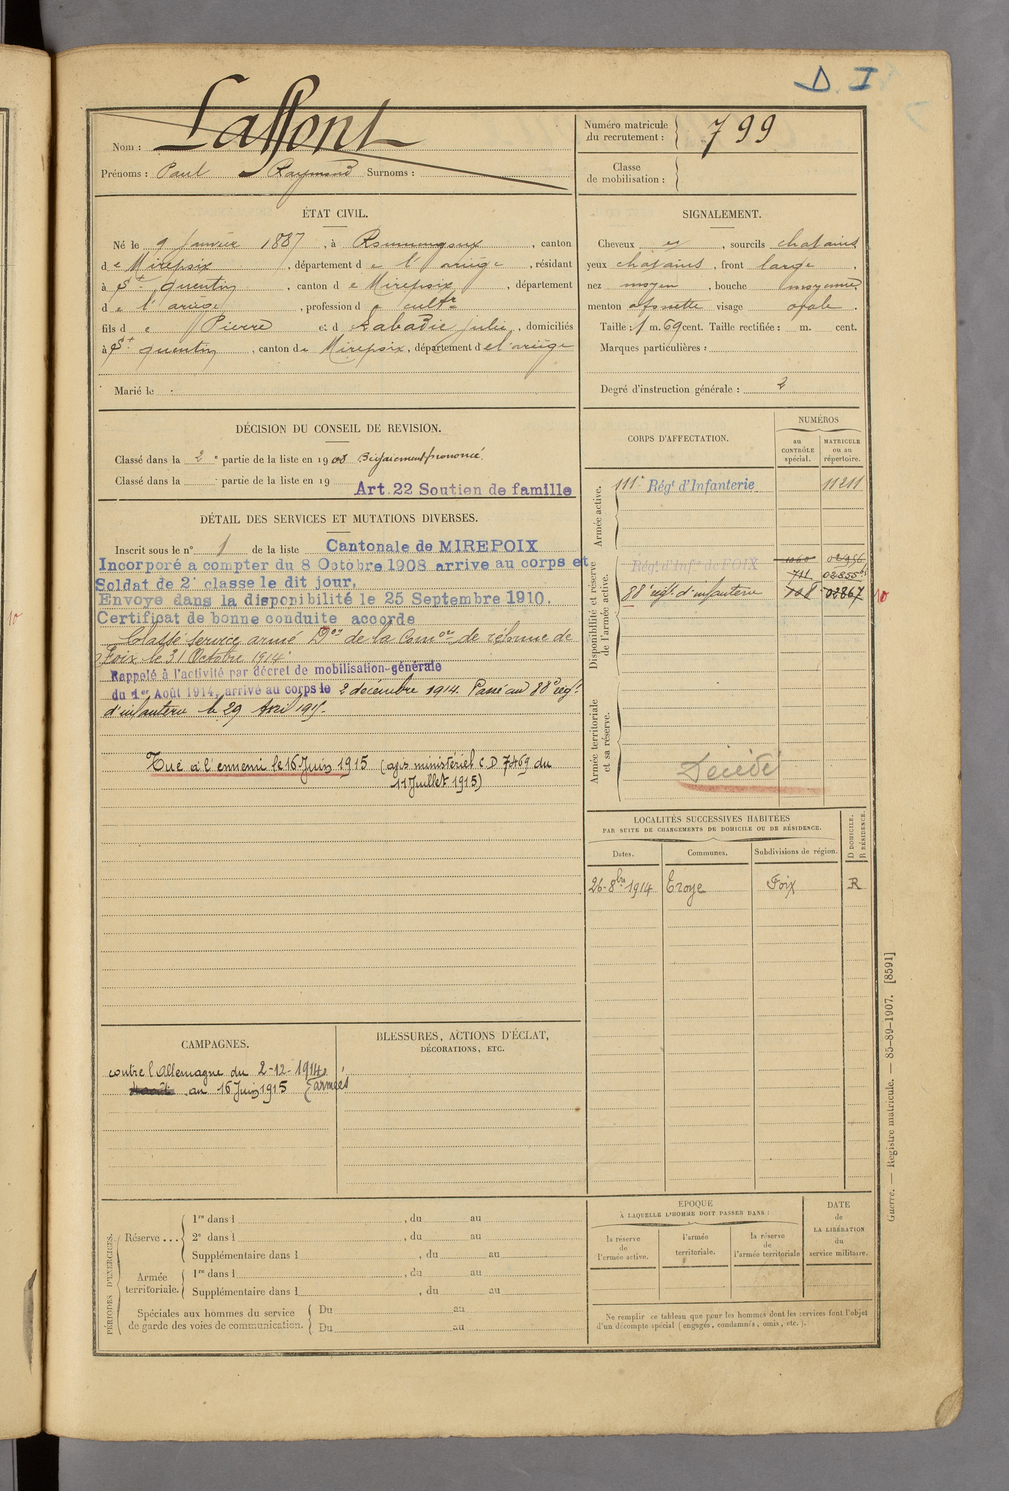 D. I
Nom : Laffont
Prénoms : Paul Raymond Surnoms :
Numéro matricule du recrutement : 799
Classe de mobilisation :
ÉTAT CIVIL.
Né le 9 Janvier 1887, à , canton
de Mirepoix, département de l'ariège, résidant
à St quentin, canton de Mirepoix, département
de l'ariège, profession de cultr
fils de Pierre et d Labadie julie, domiciliés
à St quentin, canton de Mirepoix, département de l'ariège
Marié le
SIGNALEMENT.
Cheveux et, sourcils chatains
yeux chatains, front large,
nez moyen, bouche moyenne,
menton visage ovale.
Taille : 1 m. 69 cent. Taille rectifiée : m. cent.
Marques particulières :
Degré d'instruction générale : 2
DÉCISION DU CONSEIL DE REVISION.
Classé dans la 2e partie de la liste en 1908 Bégaiement prononcé.
Classé dans la partie de la liste en 19
Art. 22 Soutien de famille
DÉTAIL DES SERVICES ET MUTATIONS DIVERSES.
Inscrit sous le n° 1 de la liste Cantonale de MIREPOIX
Incorporé a compter du 8 Octobre 1908 arrive au corps et
Soldat de 2e classe le dit jour.
Envoyé dans la disponibilité le 25 Septembre 1910.
Certificat de bonne conduite accordé
Classé service armé Don de la Comon de réforme de
Foix le 31 Octobre 1914
Rappelé à l'activité par décret de mobilisation générale
du 1er Août 1914, arrivé au corps le 2 décembre 1914. Passé au 88e regt
d'infanterie le 29 Avril 1915.
Tué à l'ennemi le 16 Juin 1915 (avis ministériel C D 7469 du
11 Juillet 1915)
CORPS D'AFFECTATION.
NUMÉROS
au CONTRÔLE spécial.
MATRICULE ou au répertoire.
Armée active.
111e Régt d'Infanterie 11211
Disponibilité et réserve de l'armée active.
Régt d'Inf'ie de FOIX
741
88e regt d'infanterie 02867
10
Armée territoriale et sa réserve.
Décédé
LOCALITÉS SUCCESSIVES HABITÉES
PAR SUITE DE CHANGEMENTS DE DOMICILE OU DE RÉSIDENCE.
Dates. Communes. Subdivisions de région. D DOMICILE. R RÉSIDENCE.
26-8bre 1914 Troye Foix R
CAMPAGNES.
contre l'Allemagne du 2-12-1914
au 16 Juin 1915 armées
BLESSURES, ACTIONS D'ÉCLAT,
DÉCORATIONS, ETC.
PÉRIODES D'EXERCICES.
Réserve ...
1re dans l , du au
2e dans l , du au
Supplémentaire dans l , du au
Armée territoriale.
1re dans l , du au
Supplémentaire dans l , du au
Spéciales aux hommes du service de garde des voies de communication.
Du au
Du au
ÉPOQUE
À LAQUELLE L'HOMME DOIT PASSER DANS :
la réserve de l'armée active.
l'armée territoriale.
la réserve de l'armée territoriale
DATE de LA LIBÉRATION du service militaire.
Ne remplir ce tableau que pour les hommes dont les services font l'objet
d'un décompte spécial (engagés, condamnés, omis, etc.).
Guerre. — Registre matricule. — 85-89-1907. [8591]